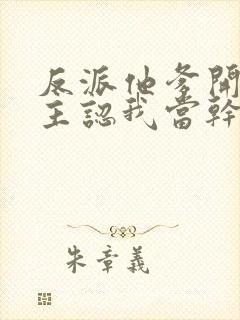 反派他爹開
主認我當幹
朱章義